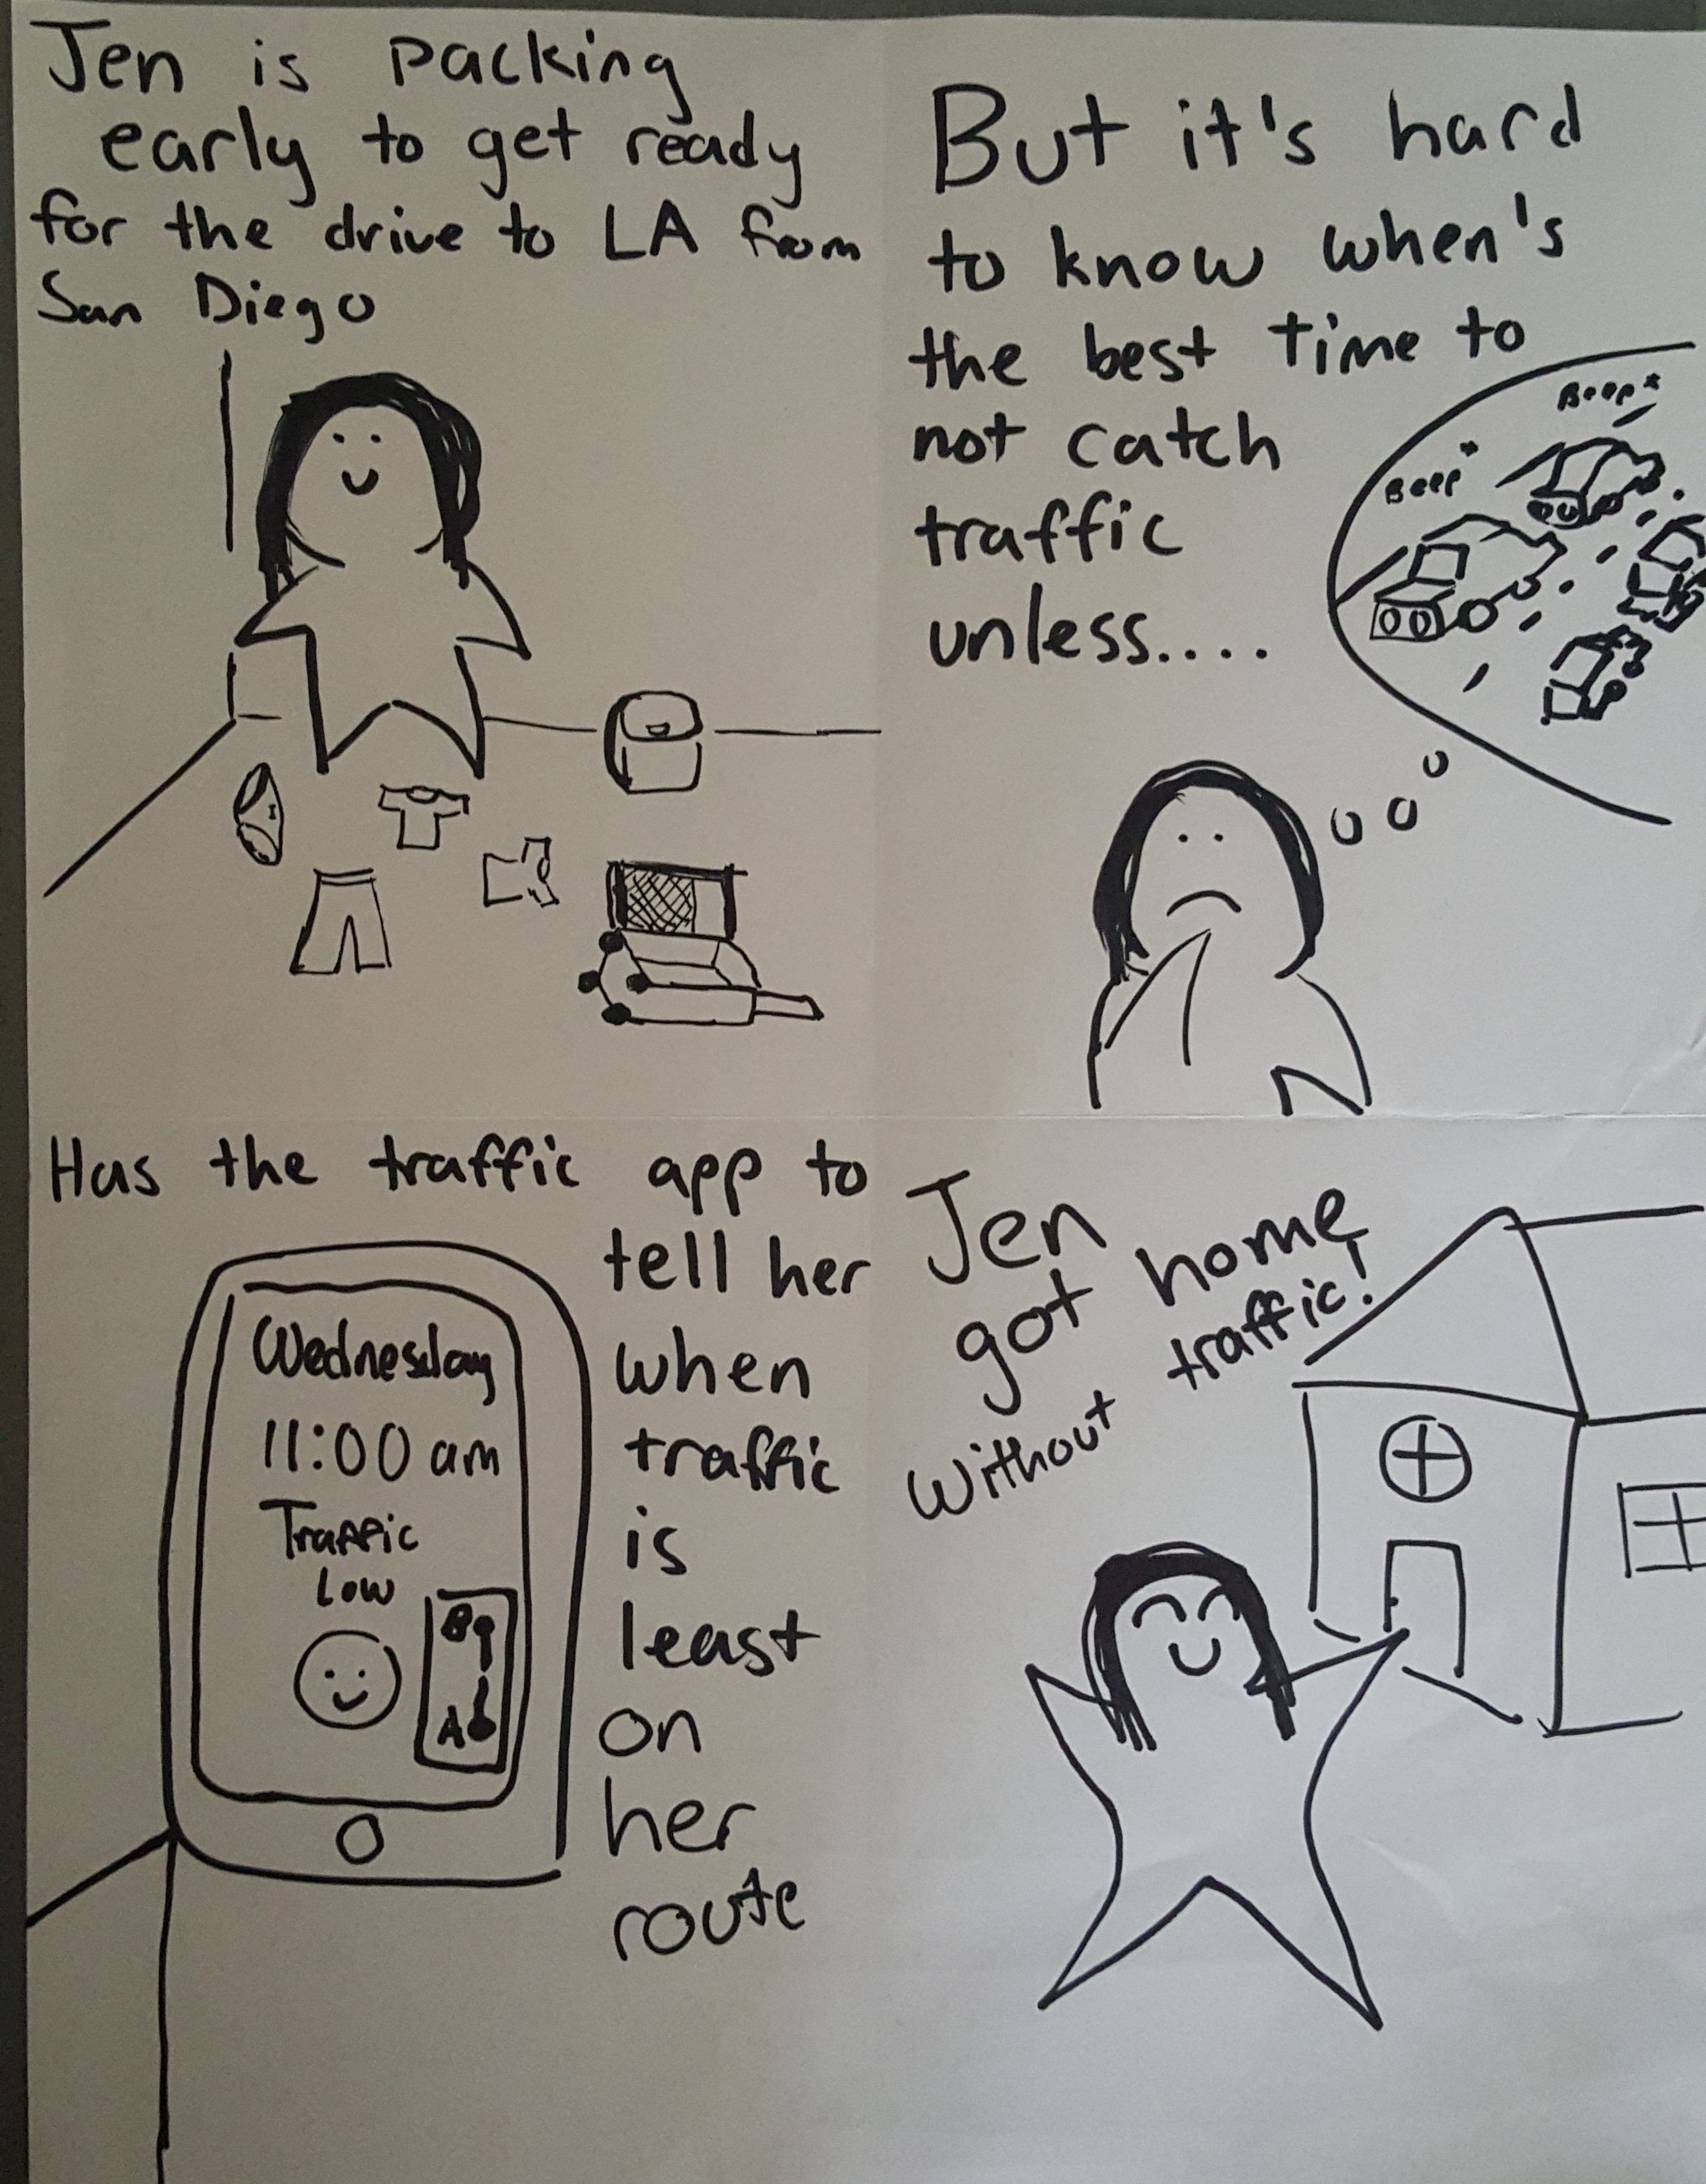 Jen is packing
early to get ready
for the drive to LA from
San Diego
But it's hard
to know when's
the best time to
not catch
traffic
unless....
Beep*
Beep*
Has the traffic app to
tell her
when
traffic
is
least
on
her
route
Wednesday
11:00 am
Traffic
Low
B
A
Jen
got home
without traffic!